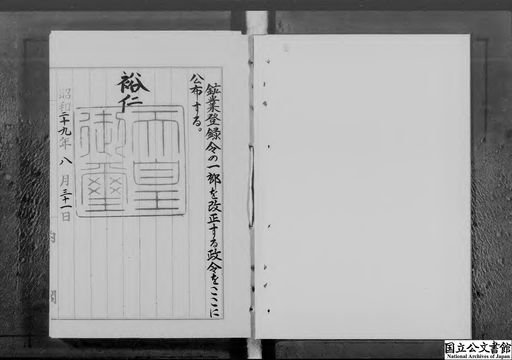 鉱業登録令の一部を改正する政令をここに
公布する。
裕仁
天皇
御璽
昭和二十九年八月三十一日
内閣
国立公文書館
National Archives of Japan